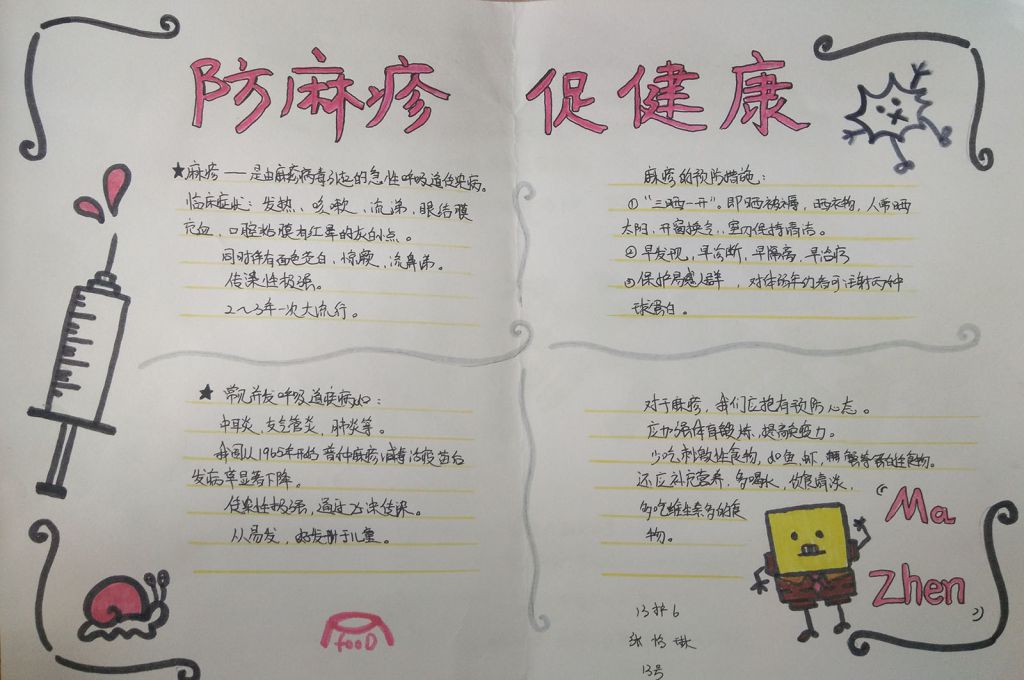 防麻疹 促健康
★麻疹——是由麻疹病毒引起的急性呼吸道传染病。
临床症状：发热、咳嗽、流涕、眼结膜
充血，口腔粘膜有红晕的灰白点。
同时伴有面色苍白、惊厥、流鼻涕。
传染性极强。
2~3年一次大流行。
麻疹的预防措施：
①“三晒一开”。即晒被褥，晒衣物，人常晒
太阳，开窗换气，室内保持清洁。
②早发现，早诊断，早隔离，早治疗
③保护易感人群，对体弱年幼者可注射丙种
球蛋白。
★常见并发呼吸道疾病如：
中耳炎、支气管炎、肺炎等。
我国从1965年开始普种麻疹减毒活疫苗后
发病率显著下降。
传染性极强，通过飞沫传染。
从易发，好发册于儿童。
对于麻疹，我们应抱有预防心态。
应加强体育锻炼，提高免疫力。
少吃刺激性食物，如鱼，虾，等刺激性食物。
还应补充营养，多喝水，饮食清淡，
多吃维生素多的食
物。
“Ma
Zhen”
fooD
13护6
张怡琳
13号